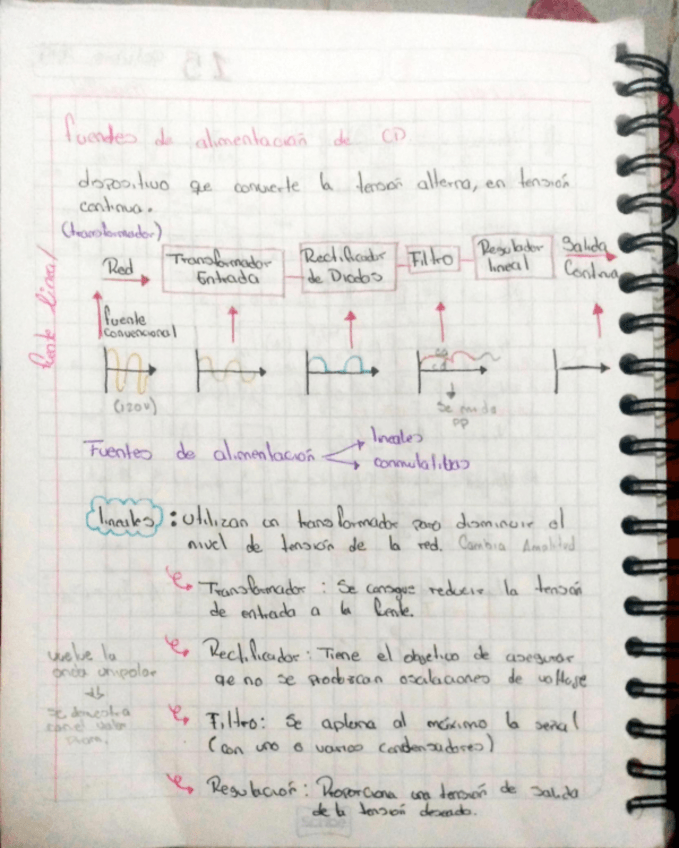 15
fuentes de alimentación de CD
dispositivo que convierte la tensión alterna, en tensión
continua.
(transformador)
fuente lineal
Red
Transformador
Entrada
Rectificador
de Diodos
Filtro
Regulador
lineal
Salida
Continua
fuente
convencional
(120v)
ca
cd
Se mide
pp
Fuentes de alimentación
lineales
conmutatibas
lineales : Utilizan un transformador para disminuir el
nivel de tensión de la red. Cambia Amplitud
Transformador : Se consigue reducir la tensión
de entrada a la fuente.
Rectificador : Tiene el objetico de asegurar
qe no se produscan oscilaciones de voltaje
vuelve la
onda unipolar
se demuestra
con el valor
Filtro : Se aplana al máximo la señal
(con uno o varios condensadores)
Regulación : Proporciona una tensión de salida
de la tensión deseado.